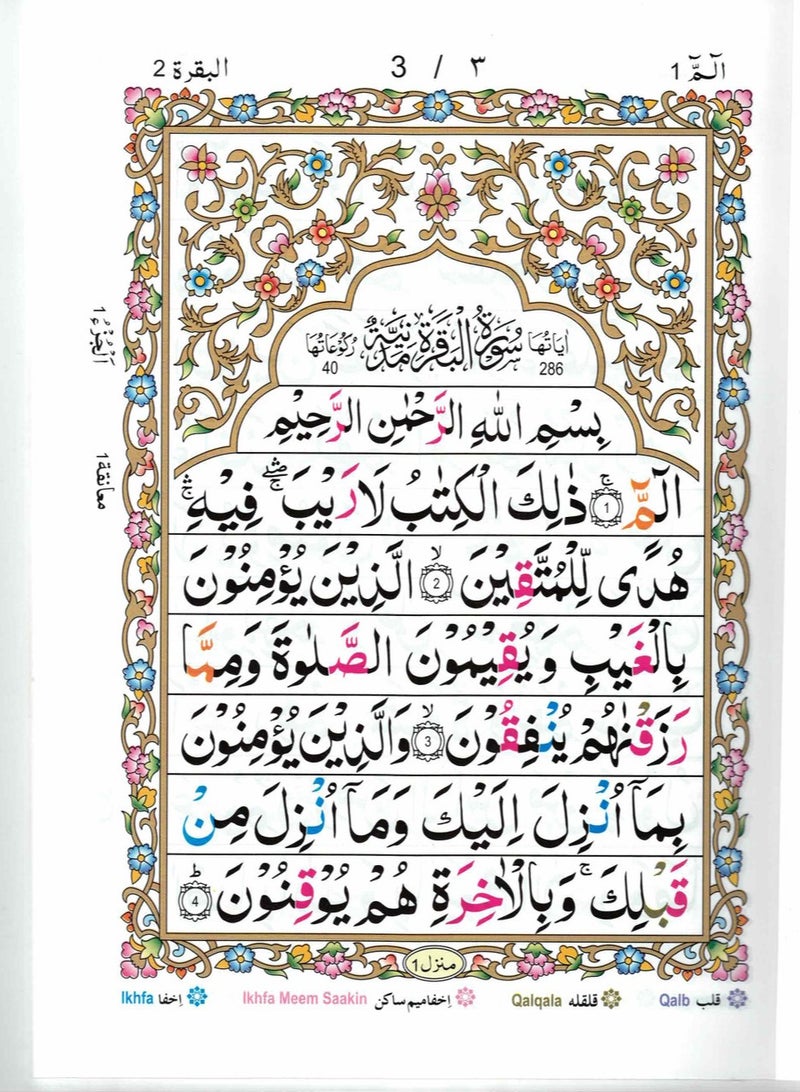 الٓمّٓ 1    3 / ٣    البقرة 2
اٰیَاتُهَا 286 سُوْرَةُ الْبَقَرَةِ مَدَنِيَّةٌ رُكُوْعَاتُهَا 40
بِسْمِ اللهِ الرَّحْمٰنِ الرَّحِيْمِ
الٓمّٓ ۚ 1 ذٰلِكَ الْكِتٰبُ لَا رَيْبَ ۛۖ فِيْهِ ۛ
هُدًى لِّلْمُتَّقِيْنَ ۙ 2 الَّذِيْنَ يُؤْمِنُوْنَ
بِالْغَيْبِ وَيُقِيْمُوْنَ الصَّلٰوةَ وَمِمَّا
رَزَقْنٰهُمْ يُنْفِقُوْنَ ۙ 3 وَالَّذِيْنَ يُؤْمِنُوْنَ
بِمَاۤ اُنْزِلَ اِلَيْكَ وَمَاۤ اُنْزِلَ مِنْ
قَبْلِكَ ۚ وَبِالْاٰخِرَةِ هُمْ يُوْقِنُوْنَ ؕ 4
اَلْجُزْءُ 1
معانقة 1
منزل 1
قلب Qalb    قلقله Qalqala    اِخفا میم ساکن Ikhfa Meem Saakin    اِخفا Ikhfa